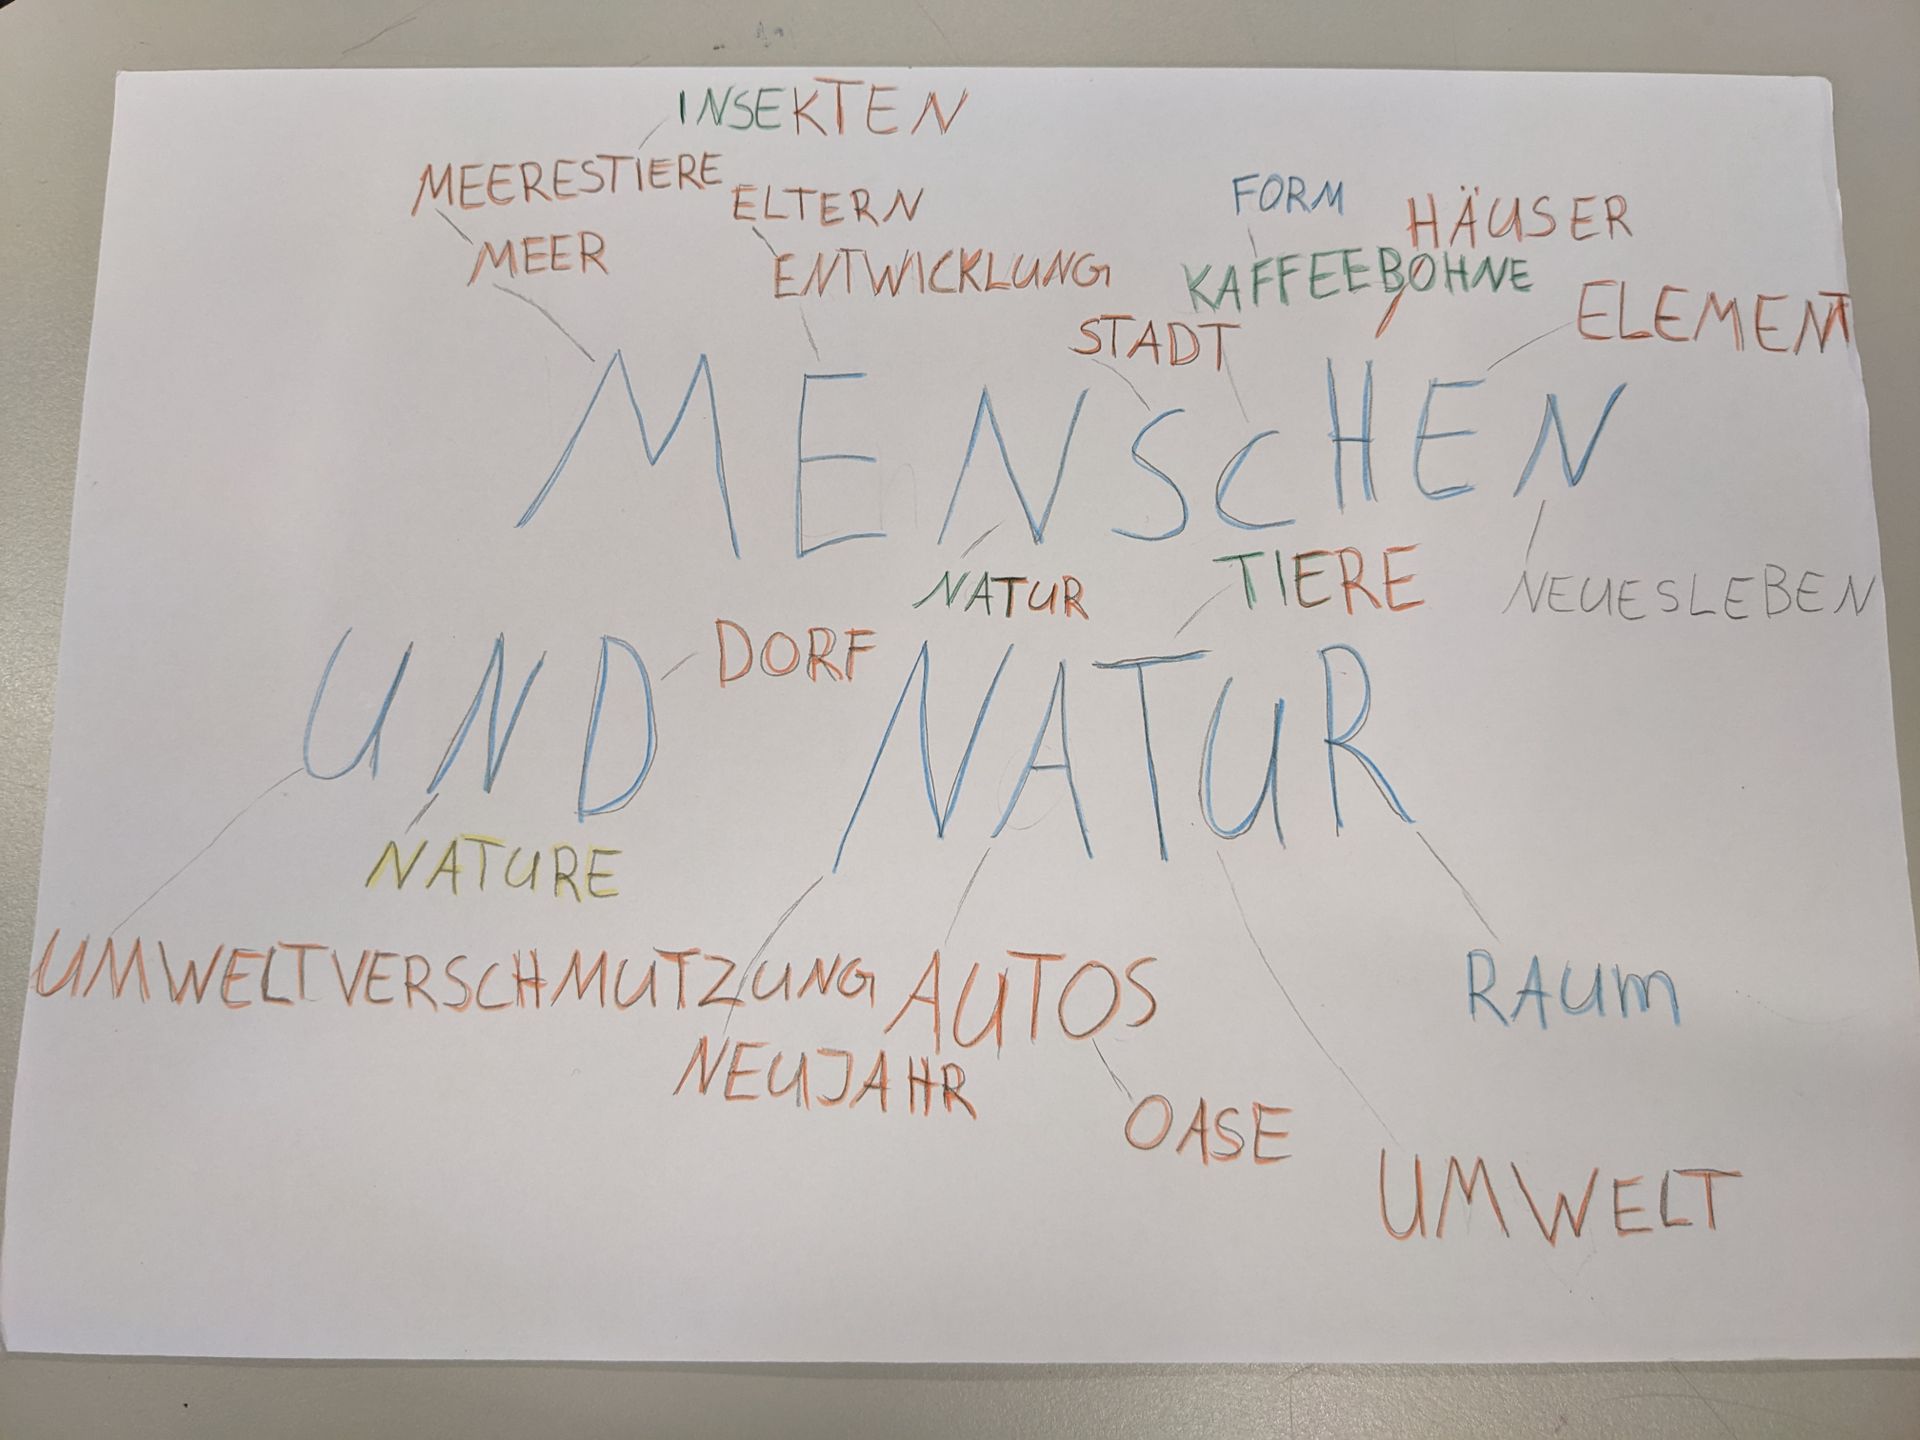 INSEKTEN
MEERESTIERE
ELTERN
FORM
HÄUSER
MEER
ENTWICKLUNG
KAFFEEBOHNE
ELEMENT
STADT
MENSCHEN
NATUR
TIERE
NEUESLEBEN
DORF
UND NATUR
NATURE
UMWELTVERSCHMUTZUNG
AUTOS
RAUM
NEUJAHR
OASE
UMWELT